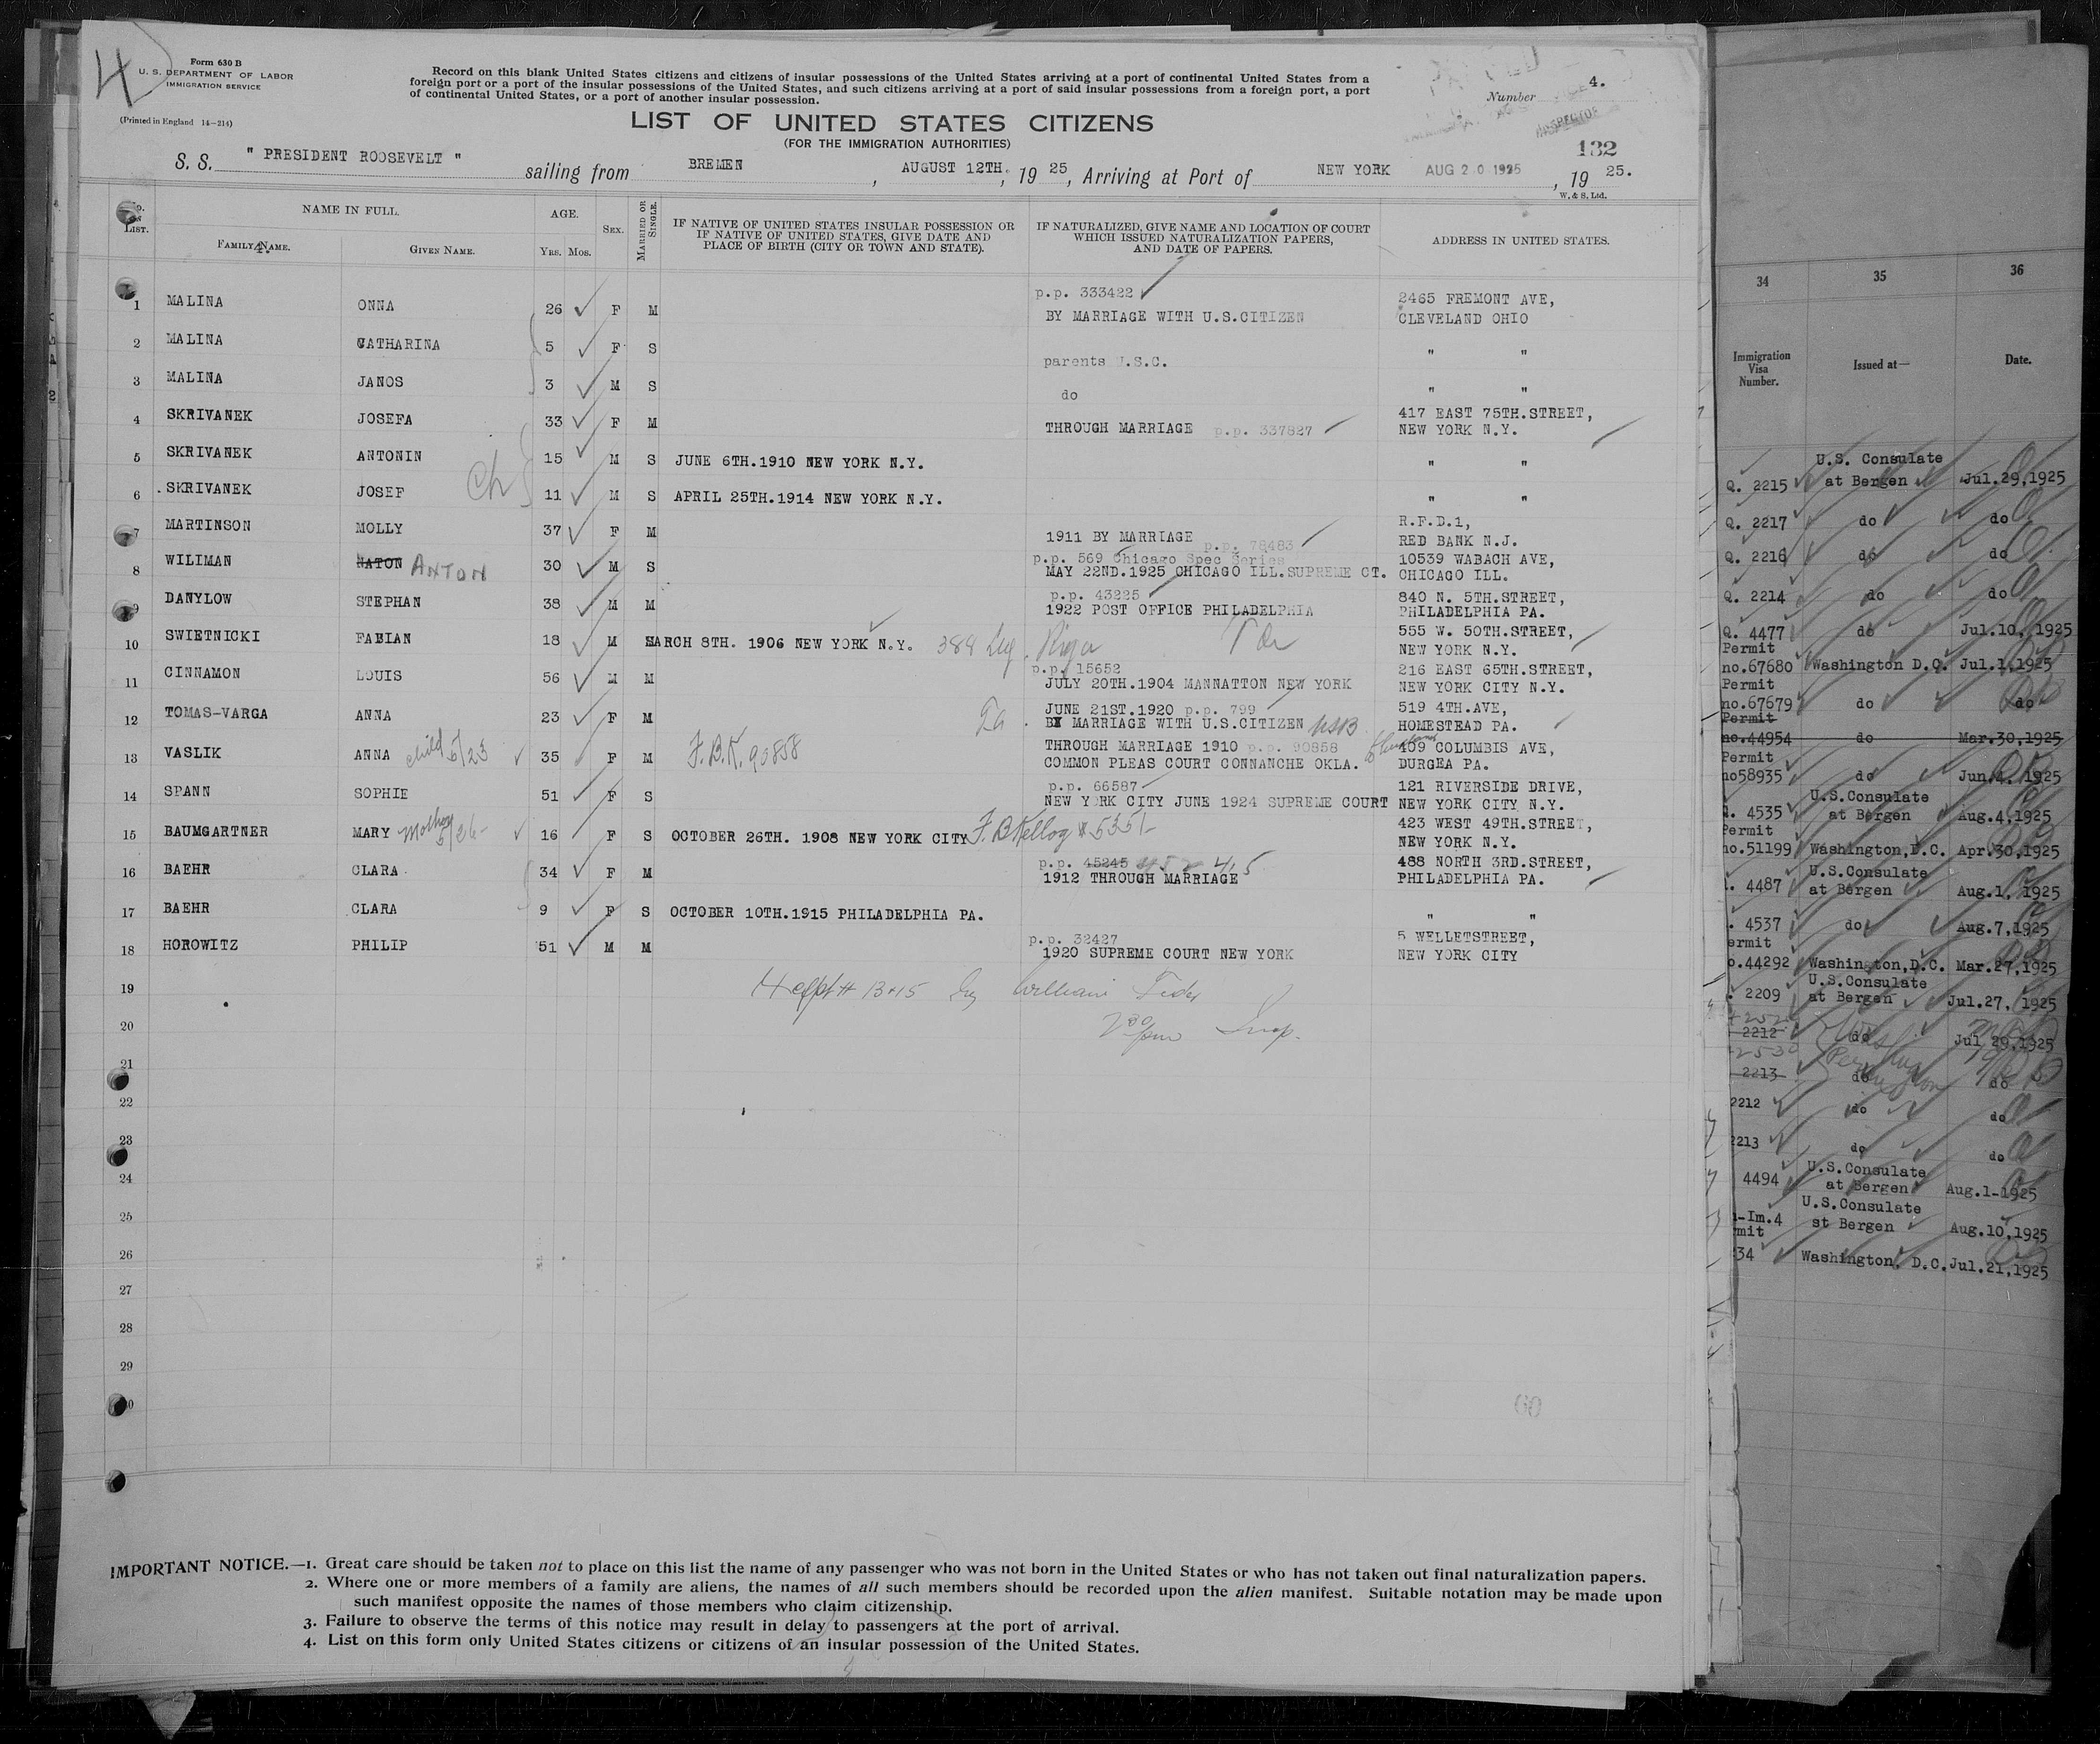 4
Form 630 B
U. S. DEPARTMENT OF LABOR
IMMIGRATION SERVICE
(Printed in England 14—214)
Record on this blank United States citizens and citizens of insular possessions of the United States arriving at a port of continental United States from a
foreign port or a port of the insular possessions of the United States, and such citizens arriving at a port of said insular possessions from a foreign port, a port
of continental United States, or a port of another insular possession.
Number 4.
INSPECTOR
LIST OF UNITED STATES CITIZENS
(FOR THE IMMIGRATION AUTHORITIES)
132
S. S. " PRESIDENT ROOSEVELT " sailing from BREMEN, AUGUST 12TH., 19 25, Arriving at Port of NEW YORK AUG 20 1925, 19 25.
W. & S. Ltd.
No. on LIST. NAME IN FULL. AGE. SEX. MARRIED OR SINGLE. IF NATIVE OF UNITED STATES INSULAR POSSESSION OR IF NATIVE OF UNITED STATES, GIVE DATE AND PLACE OF BIRTH (CITY OR TOWN AND STATE). IF NATURALIZED, GIVE NAME AND LOCATION OF COURT WHICH ISSUED NATURALIZATION PAPERS, AND DATE OF PAPERS. ADDRESS IN UNITED STATES.
FAMILY NAME. GIVEN NAME. YRS. MOS.
1 MALINA ONNA 26 F M p.p. 333422 BY MARRIAGE WITH U.S.CITIZEN 2465 FREMONT AVE, CLEVELAND OHIO
2 MALINA CATHARINA 5 F S parents U.S.C. " "
3 MALINA JANOS 3 M S do " "
4 SKRIVANEK JOSEFA 33 F M THROUGH MARRIAGE p.p. 337827 417 EAST 75TH.STREET, NEW YORK N.Y.
5 SKRIVANEK ANTONIN 15 M S JUNE 6TH.1910 NEW YORK N.Y. " "
Ch
6 SKRIVANEK JOSEF 11 M S APRIL 25TH.1914 NEW YORK N.Y. " "
7 MARTINSON MOLLY 37 F M 1911 BY MARRIAGE p.p. 78483 R.F.D.1, RED BANK N.J.
8 WILIMAN NATON ANTON 30 M S p.p. 569 Chicago Spec Series MAY 22ND.1925 CHICAGO ILL.SUPREME CT. 10539 WABACH AVE, CHICAGO ILL.
9 DANYLOW STEPHAN 38 M M p.p. 43225 1922 POST OFFICE PHILADELPHIA 840 N. 5TH.STREET, PHILADELPHIA PA.
10 SWIETNICKI FABIAN 18 M MARCH 8TH. 1906 NEW YORK N.Y. 388 Leg. Riga 555 W. 50TH.STREET, NEW YORK N.Y.
11 CINNAMON LOUIS 56 M M p.p. 15652 JULY 20TH.1904 MANNATTON NEW YORK 216 EAST 65TH.STREET, NEW YORK CITY N.Y.
12 TOMAS-VARGA ANNA 23 F M JUNE 21ST.1920 p.p. 799 BY MARRIAGE WITH U.S.CITIZEN 519 4TH.AVE, HOMESTEAD PA.
13 VASLIK ANNA child 5/23 35 F M F.B.K. 90858 THROUGH MARRIAGE 1910 p.p. 90858 COMMON PLEAS COURT CONNANCHE OKLA. 409 COLUMBIS AVE, DURGEA PA.
14 SPANN SOPHIE 51 F S p.p. 66587 NEW YORK CITY JUNE 1924 SUPREME COURT 121 RIVERSIDE DRIVE, NEW YORK CITY N.Y.
15 BAUMGARTNER MARY Mother 5/26 16 F S OCTOBER 26TH. 1908 NEW YORK CITY F.B Kellog # 5351 423 WEST 49TH.STREET, NEW YORK N.Y.
16 BAEHR CLARA 34 F M p.p. 45245 45245 1912 THROUGH MARRIAGE 488 NORTH 3RD.STREET, PHILADELPHIA PA.
17 BAEHR CLARA 9 F S OCTOBER 10TH.1915 PHILADELPHIA PA. " "
18 HOROWITZ PHILIP 51 M M p.p. 32427 1920 SUPREME COURT NEW YORK 5 WELLETSTREET, NEW YORK CITY
19 # 13+15 by William
20 2 30 pm Insp.
21
22
23
24
25
26
27
28
29
30
60
IMPORTANT NOTICE.—1. Great care should be taken not to place on this list the name of any passenger who was not born in the United States or who has not taken out final naturalization papers.
2. Where one or more members of a family are aliens, the names of all such members should be recorded upon the alien manifest. Suitable notation may be made upon
such manifest opposite the names of those members who claim citizenship.
3. Failure to observe the terms of this notice may result in delay to passengers at the port of arrival.
4. List on this form only United States citizens or citizens of an insular possession of the United States.
34 35 36
Immigration Visa Number. Issued at— Date.
Q. 2215 U.S. Consulate at Bergen Jul.29,1925
Q. 2217 do do
Q. 2216 do do
Q. 2214 do do
Q. 4477 do Jul.10, 1925
Permit no.67680 Washington D.C. Jul.1,1925
Permit no.67679 do do
Permit no.44954 do Mar.30,1925
Permit no58935 do Jun.4. 1925
4535 U.S.Consulate at Bergen Aug.4,1925
Permit no.51199 Washington,D.C. Apr.30,1925
4487 U.S.Consulate at Bergen Aug.1, 1925
4537 do Aug.7,1925
ermit o.44292 Washington,D.C. Mar.27,1925
2209 U.S.Consulate at Bergen Jul.27, 1925
2212 do Jul 29,1925
2213 do do
2212 do do
2213 do do
4494 U.S.Consulate at Bergen Aug.1-1925
-Im.4 U.S.Consulate st Bergen Aug.10,1925
mit 34 Washington. D.C. Jul.21,1925